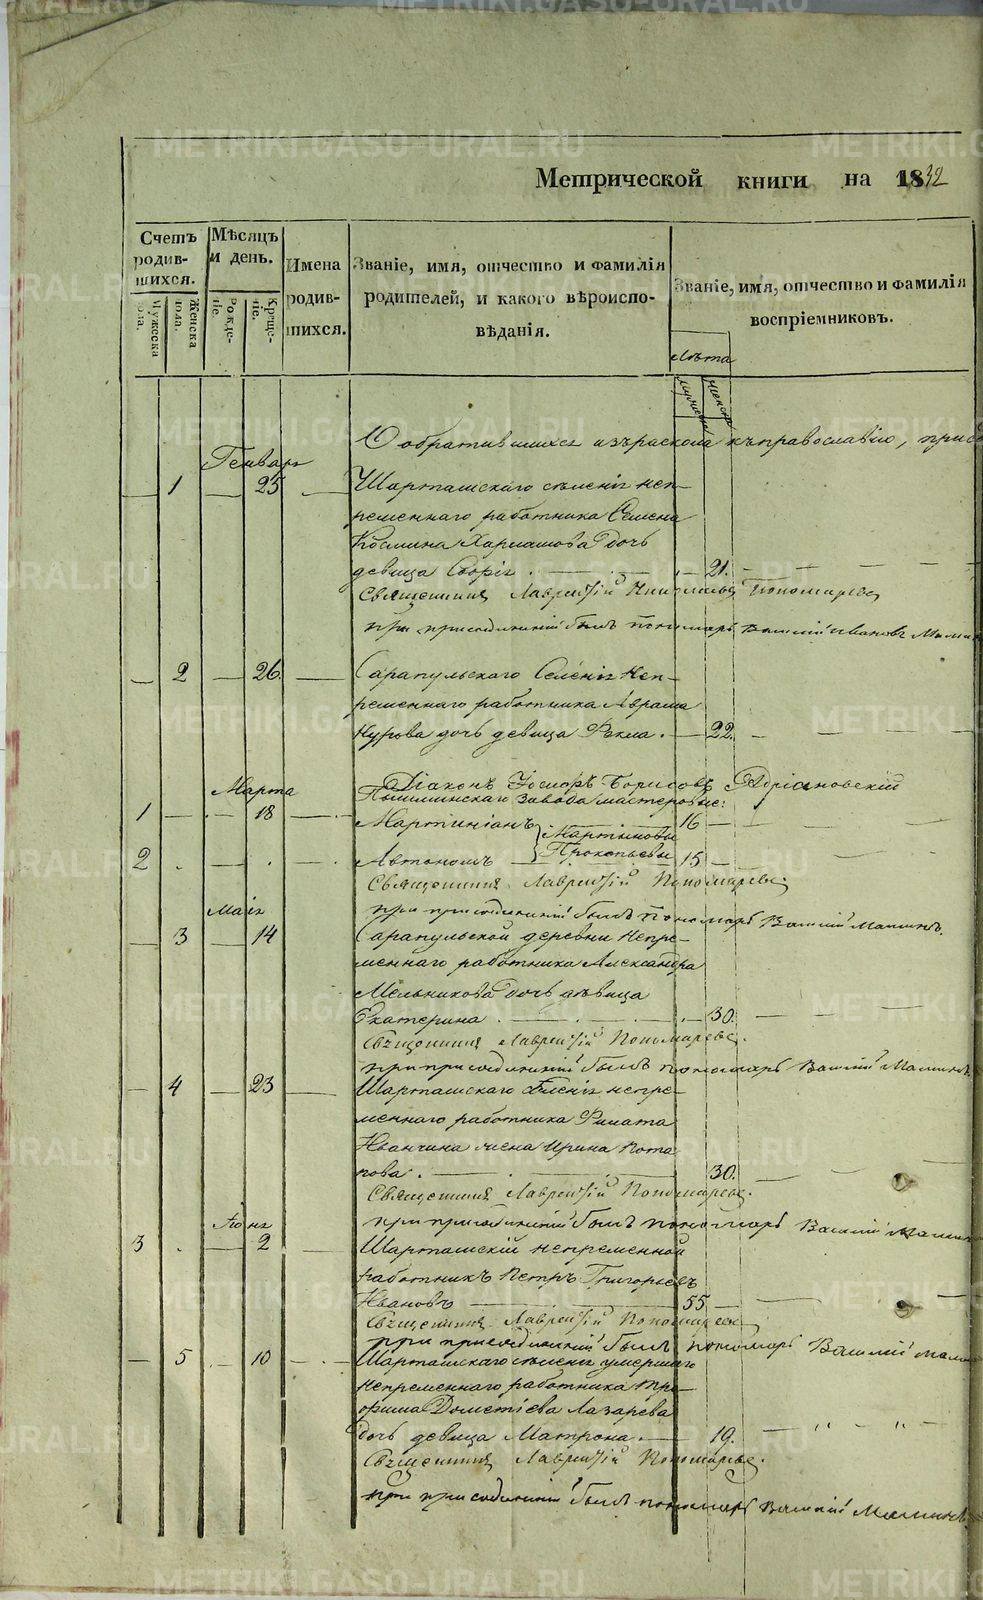 METRIKI.GASO-URAL.RU
Метрической книги на 1832
Счетъ родив-шихся.
Мужеска пола.
Женска пола.
Мѣсяцъ и день.
Рожде-ніе.
Креще-ніе.
Имена родив-шихся.
Званіе, имя, отчество и фамилія родителей, и какого вѣроиспо-вѣданія.
Званіе, имя, отчество и фамилія воспріемниковъ.
Лѣта
О обратившихся изъ раскола къ православію,
Генварь
1 25 Шарташскаго селенія неп-
ременнаго работника Семена
Козмина дочь
девица Софія 21.
Священникъ Лаврентій Николаевъ Пономаревъ
при присоединеніи былъ пономарь Василій Ивановъ
2 26. Сарапульскаго Селенія Неп-
ременнаго работника Аврама
дочь девица Фекла. 22.
Діаконъ Іосифъ Борисовъ Адріановскій
Марта
Пышминскаго завода мастеровые:
1 18 Мартиніанъ Мартиновы 16
2 Автономъ Прокопьевы 15
Священникъ Лаврентій Пономаревъ.
при присоединеніи былъ пономарь Василій Маминъ.
Маія
3 14 Сарапульской деревни Непре-
меннаго работника Александра
Мельникова дочь дѣвица
Екатерина. 30.
Священникъ Лаврентій Пономаревъ.
при присоединеніи былъ пономарь Василій Маминъ
4 23 Шарташскаго Селенія непре-
меннаго работника Филата
Иванчина жена Ирина Пота-
пова. 30.
Священникъ Лаврентій Пономаревъ.
при присоединеніи былъ пономарь Василій Маминъ
Іюня
3 2 Шарташскій непременной
работникъ Петръ Григорьевъ
Ивановъ 55
Священникъ Лаврентій Пономаревъ
при присоединеніи былъ пономарь Василій
5 10 Шарташскаго селенія умершаго
непременнаго работника Тро-
фима Дометіева Лазарева
дочь девица Матрона. 19.
Священникъ Лаврентій Пономаревъ.
при присоединеніи былъ пономарь Василій Маминъ.